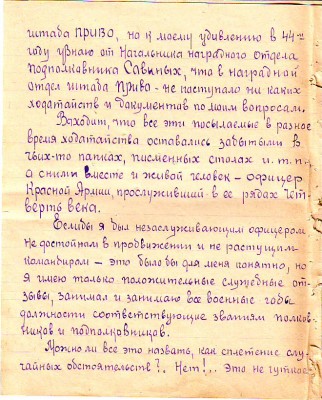 штаба ПРИВО, но к моему удивлению в 44-м
году узнаю от Начальника наградного отдела
подполковника Савиных, что в наградной
отдел штаба Приво - не поступало ни каких
ходатайств и документов по моим вопросам.
Выходит, что все эти посылаемые в разное
время ходатайства оставались забытыми в
чьих-то папках, письменных столах и.т.п.
а с ними вместе и живой человек - офицер
Красной Армии, прослуживший в ее рядах чет
верть века.
Если бы я был незаслуживающим офицером
не достойным в продвижении и не растущим
командиром - это было бы для меня понятно, но
я имею только положительные служебные от-
зывы, занимал и занимаю все военные годы
должности соответствующие званиям полков-
ников и подполковников.
Можно ли все это назвать, как сплетение слу-
чайных обстоятельств?. Нет!.. Это не чуткое